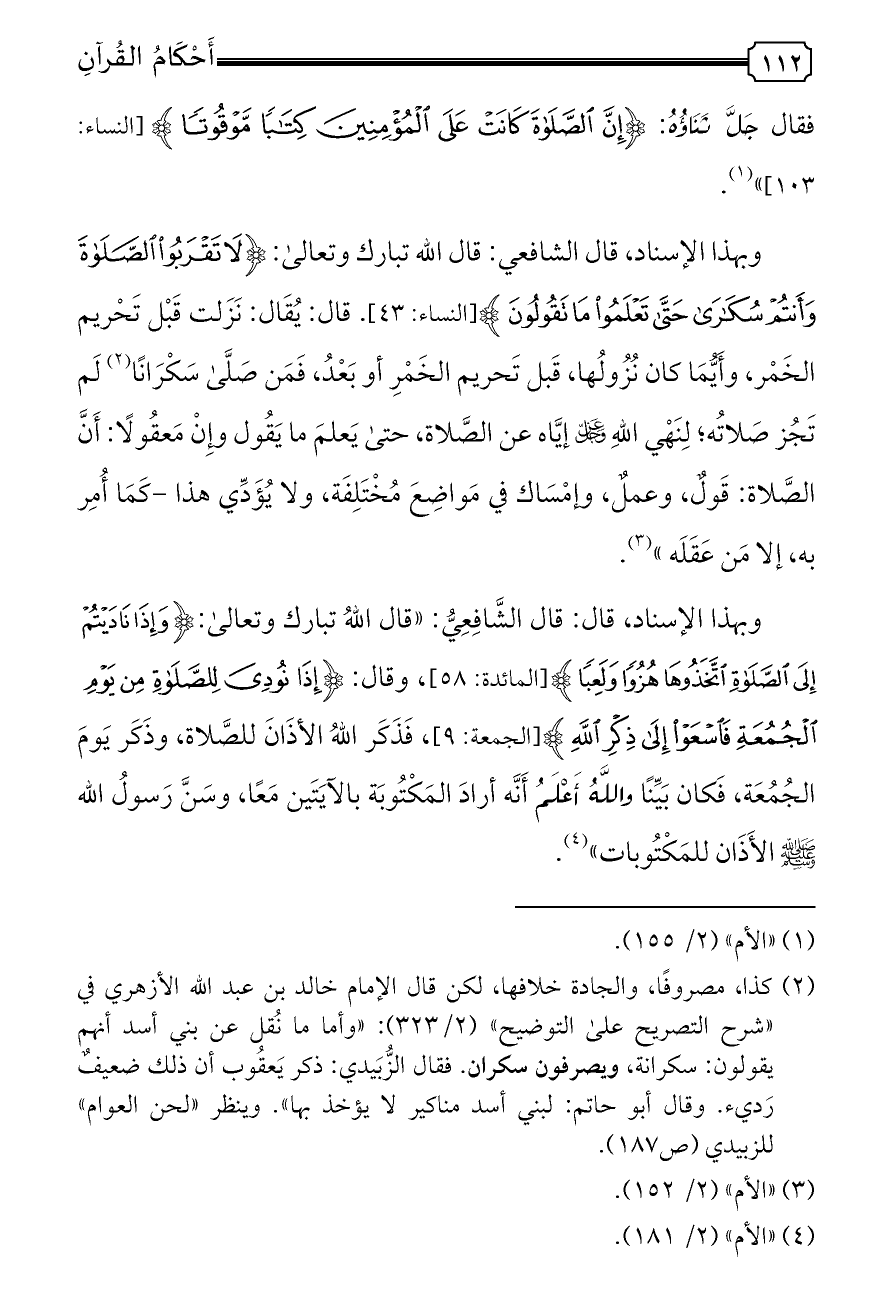 ١١٢ أَحْكَامُ القُرآنِ
فقال جَلَّ ثَنَاؤُهُ: ﴿إِنَّ ٱلصَّلَوٰةَ كَانَتْ عَلَى ٱلْمُؤْمِنِينَ كِتَٰبًا مَّوْقُوتًا﴾ [النساء:
١٠٣]»(١).
وبهذا الإسناد، قال الشافعي: قال الله تبارك وتعالىٰ: ﴿لَا تَقْرَبُوا۟ ٱلصَّلَوٰةَ
وَأَنتُمْ سُكَٰرَىٰ حَتَّىٰ تَعْلَمُوا۟ مَا تَقُولُونَ﴾[النساء: ٤٣]. قال: يُقَال: نَزَلت قَبْل تَحْريم
الخَمْر، وأَيُّمَا كان نُزُولُها، قَبل تَحريم الخَمْرِ أو بَعْدُ، فَمَن صَلَّىٰ سَكْرَانًا(٢) لَم
تَجُز صَلاتُه؛ لِنَهْي اللهِ ﷿ إيَّاه عن الصَّلاة، حتىٰ يَعلمَ ما يَقُول وإِنْ مَعقُولًا: أَنَّ
الصَّلاة: قَولٌ، وعملٌ، وإمْسَاك في مَواضِعَ مُخْتَلِفَة، ولا يُؤَدِّي هذا -كَمَا أُمِر
به، إلا مَن عَقَلَه »(٣).
وبهذا الإسناد، قال: قال الشَّافِعِيُّ: «قال اللهُ تبارك وتعالىٰ: ﴿وَإِذَا نَادَيْتُمْ
إِلَى ٱلصَّلَوٰةِ ٱتَّخَذُوهَا هُزُوًا وَلَعِبًا﴾[المائدة: ٥٨]، وقال: ﴿إِذَا نُودِىَ لِلصَّلَوٰةِ مِن يَوْمِ
ٱلْجُمُعَةِ فَٱسْعَوْا۟ إِلَىٰ ذِكْرِ ٱللَّهِ﴾[الجمعة: ٩]، فَذَكَر اللهُ الأذَانَ للصَّلاة، وذَكَر يَومَ
الجُمُعَة، فَكان بَيِّنًا واللَّهُ أَعْلَمُ أنَّه أرادَ المَكْتُوبَة بالآيَتَين مَعًا، وسَنَّ رَسولُ الله
ﷺ الأذَان للمَكْتُوبات»(٤).
(١) «الأم» (٢/ ١٥٥).
(٢) كذا، مصروفًا، والجادة خلافها، لكن قال الإمام خالد بن عبد الله الأزهري في
«شرح التصريح علىٰ التوضيح» (٢/ ٣٢٣): «وأما ما نُقل عن بني أسد أنهم
يقولون: سكرانة، ويصرفون سكران. فقال الزُّبَيدي: ذكر يَعقُوب أن ذلك ضعيفٌ
رَديء. وقال أبو حاتم: لبني أسد مناكير لا يؤخذ بها». وينظر «لحن العوام»
للزبيدي (ص١٨٧).
(٣) «الأم» (٢/ ١٥٢).
(٤) «الأم» (٢/ ١٨١).